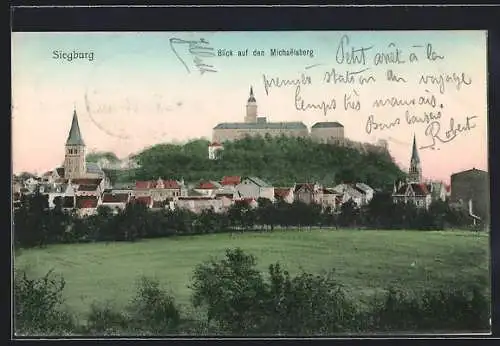 Siegburg
Blick auf den Michaelsberg
Petit arrêt à la
première station du voyage
temps très mauvais.
Bons baisers
Robert